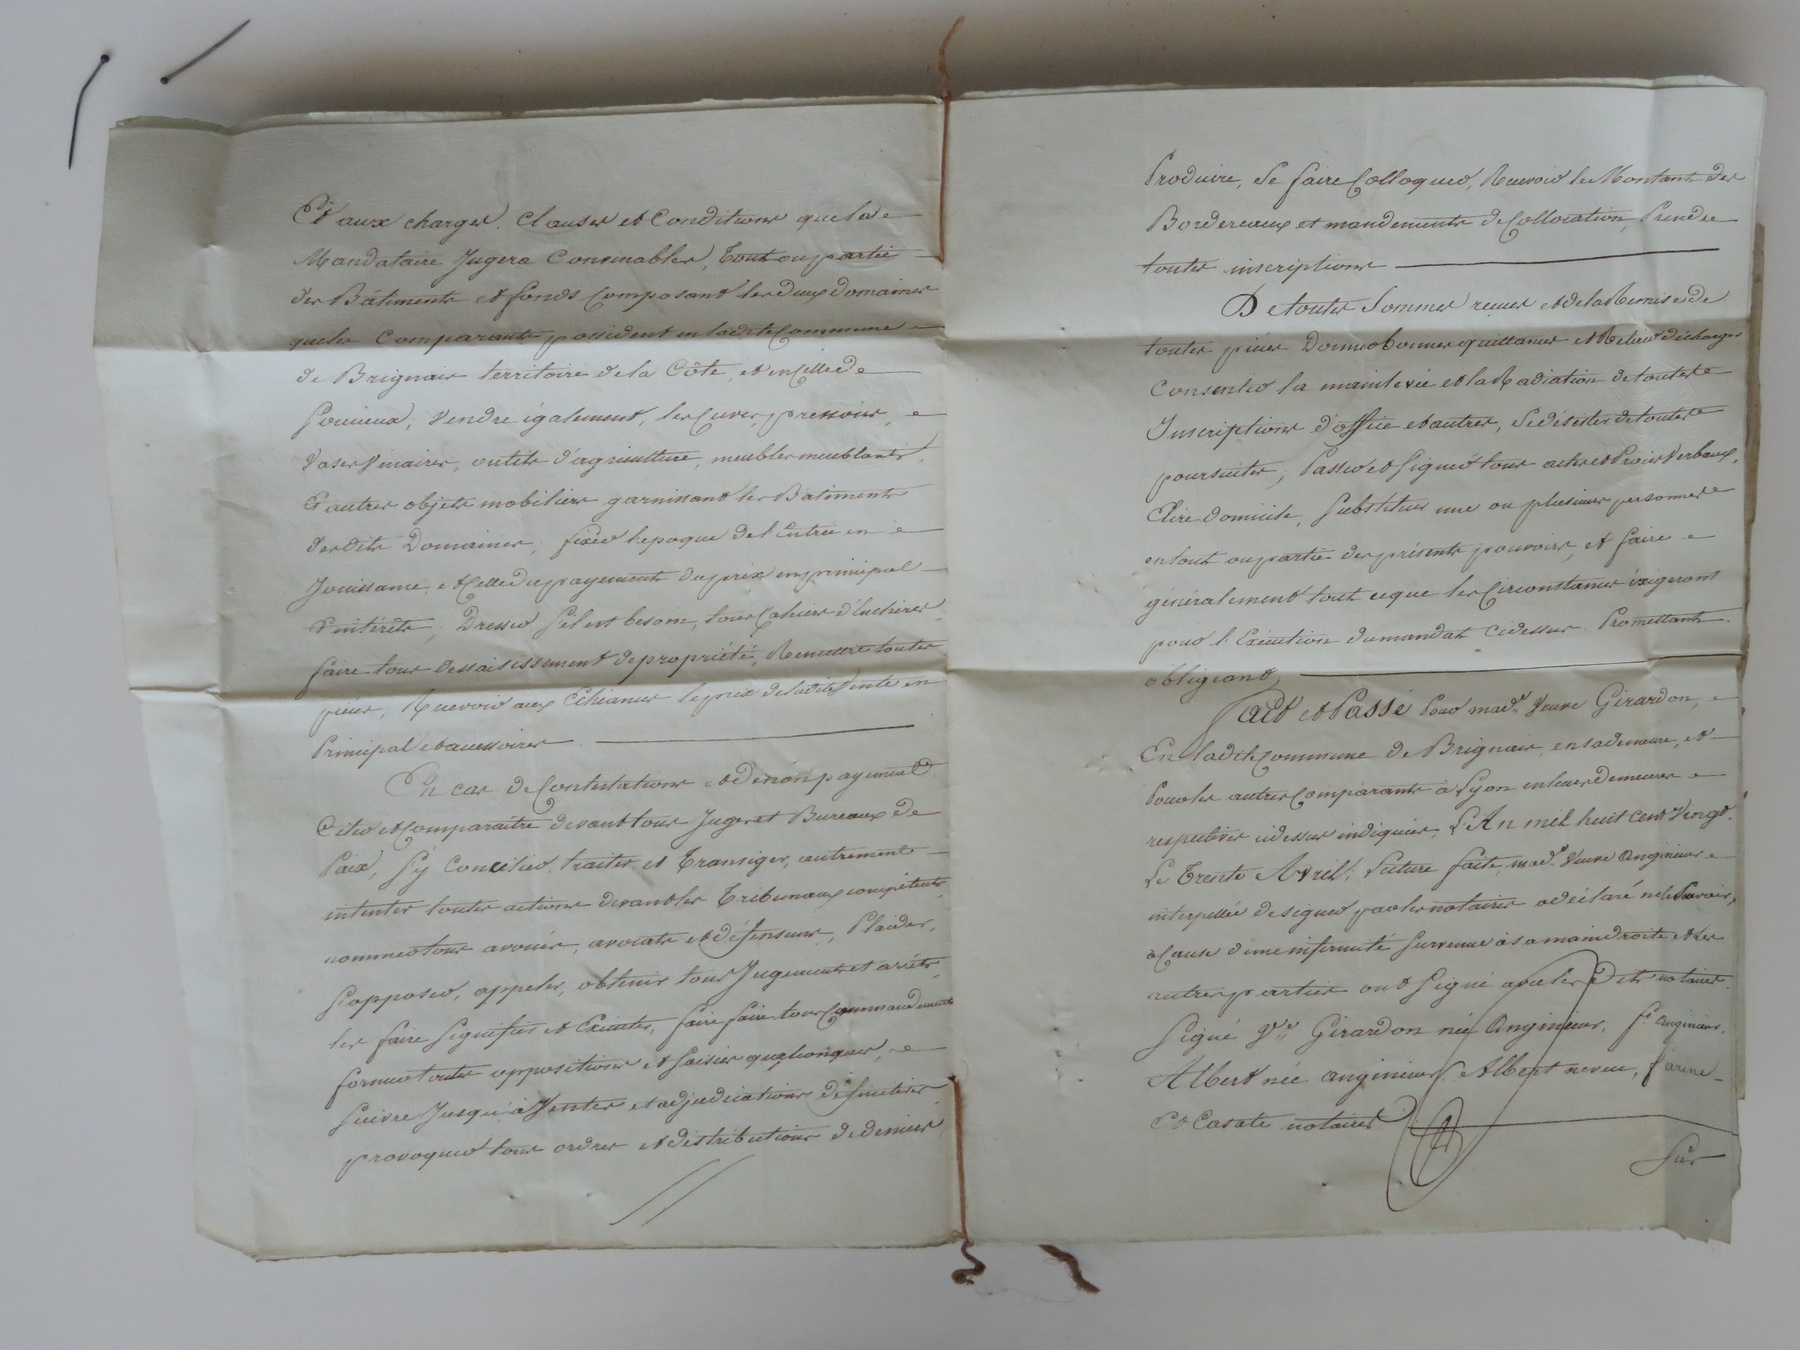 Et aux charges, Clauses et Conditions que la
Mandataire Jugera Convenables, Tout ou partie
des Bâtiments et fonds Composant les deux domaines
que les Comparants possedent en ladite Commune
de Brignais territoire de la Côte, et en Celle de
Soucieux, Vendre également, les Cuves, pressoirs,
Vases Vinaires, outils d'agriculture, meubles meublants
et autres objets mobiliers garnissant les Bâtiments
desdits Domaines, fixer lepoque de l'Entrée en
Jouissance, et Celle du payement du prix en principal
et intérêts, Dresser S'il est besoin, tous Cahiers d'Enchères,
faire tous dessaisissement de propriété, Remettre toutes
pièces, Recevoir aux Echéances le prix de ladite Vente en
Principal et accessoires
En cas de Contestations et de non payement
Citer et Comparaître devant tous Juges et Bureaux de
Paix, S'y Concilier, traiter et Transiger, autrement
intenter toutes actions devant les Tribunaux compétents,
nommer tous avoués, avocats et défenseurs, Plaider,
S'opposer, appeler, obtenir tous Jugements et arrêts,
les faire Signifier et Exécuter, faire faire tous Commandements
former toutes oppositions et Saisies quelconques,
Suivre Jusqu'à Ventes et adjudications définitives,
provoquer tous ordres et distributions de deniers
Produire, Se faire Colloquer, Recevoir le Montant des
Bordereaux et mandements de Collocation, Prendre
toutes inscriptions
De toutes Sommes reçues et de la Remise de
toutes pièces Donner bonnes quittances et Retirer décharges
Consentir la mainlevée et la Radiation de toutes
Inscriptions d'office et autres, Se désister de toutes
poursuites, Passer et Signer tous actes et Procès Verbaux,
Elire domicile, Substituer une ou plusieurs personnes
en tout ou partie des présents pouvoirs, et faire
généralement tout ce que les Circonstances éxigeront
pour l'Exécution du mandat Cidessus. Promettant.
obligeant,
Fait et Passé Pour mad.e Veuve Girardon,
En ladite Commune de Brignais, en sa demeure, et
Pour les autres Comparants à Lyon en leurs demeures
respectives cidessus indiquées, L'An mil huit cent Vingt.
Le Trente Avril, Lecture faite, mad.e Veuve Anginieur
interpellée de signer par les notaires a déclaré ne le Savoir,
a Cause d'une infirmité Survenue à sa main droite et les
autres parties ont Signé avec les dits notaires.
Signé V.e Girardon née Anginieur, f.s Anginieur,
Albert née anginieur, Albert neveu, Farine
Et Casate notaires
Sur